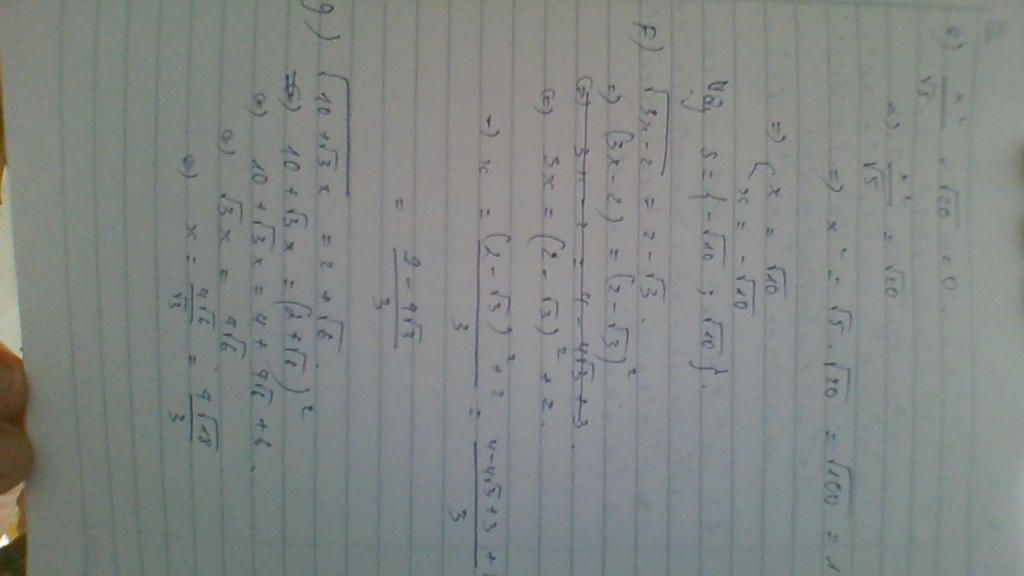 e) x²/√5 - √20 = 0
=) x²/√5 = √20
=) x² = √5 . √20 = √100 = 1
=) { x = √10
x = -√10
Vậy S = { -√10 ; √10 }.
f) √3x - 2 = 2 - √3.
=) (3x - 2) = (2 - √3)²
(=) 3x = (2 - √3)² + 2.
=) x = (2 - √3)² + 2 / 3 = 4 - 4√3 + 3 +  / 3
= 9 - 4√3 / 3
g) √10 + √3 x = 2 + √6
=) 10 + √3 x = (2 + √6)²
(=) 10 + √3 x = 4 + 4√6 + 6.
(=) √3 x = 4√6
(=) x = 4√6 / √3 = 4√18 / 3